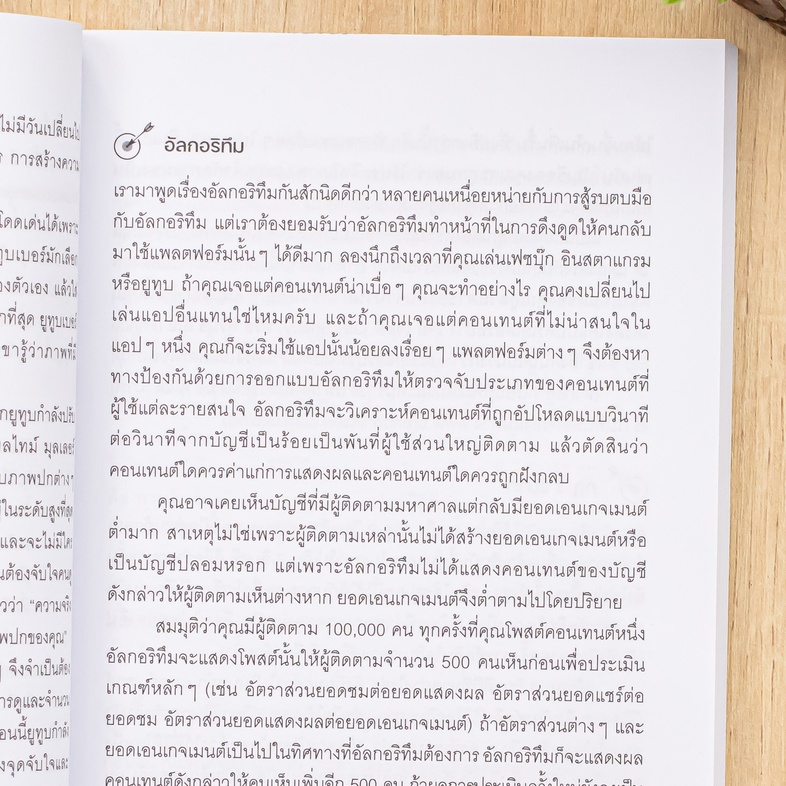 ไม่มีวันเปลี่ยน
การสร้างความ
โดดเด่นได้เพราะ
ทูบเบอร์มักเลือก
องตัวเอง แล้วใ
กที่สุด ยูทูบเบอร์
ขารู้ว่าภาพที่
กยูทูบกำลังปรับ
ลไทม์ มุลเลอร์
บภาพปกต่างๆ
ในระดับสูงที่สุด
และจะไม่มีใคร
นต้องจับใจคนดู
ว่า "ความจริง
พปกของคุณ"
จึงจำเป็นต้อง
ารดูและจำนวน
อนนี้ยูทูบกำลัง
งจุดจับใจและ
อัลกอริทึม
เรามาพูดเรื่องอัลกอริทึมกันสักนิดดีกว่า หลายคนเหนื่อยหน่ายกับการสู้รบตบมือ
กับอัลกอริทึม แต่เราต้องยอมรับว่าอัลกอริทึมทำหน้าที่ในการดึงดูดให้คนกลับ
มาใช้แพลตฟอร์มนั้นๆ ได้ดีมาก ลองนึกถึงเวลาที่คุณเล่นเฟซบุ๊ก อินสตาแกรม
หรือยูทูบ ถ้าคุณเจอแต่คอนเทนต์น่าเบื่อๆ คุณจะทำอย่างไร คุณคงเปลี่ยนไป
เล่นแอปอื่นแทนใช่ไหมครับ และถ้าคุณเจอแต่คอนเทนต์ที่ไม่น่าสนใจใน
แอปๆ หนึ่ง คุณก็จะเริ่มใช้แอปนั้นน้อยลงเรื่อยๆ แพลตฟอร์มต่างๆ จึงต้องหา
ทางป้องกันด้วยการออกแบบอัลกอริทึมให้ตรวจจับประเภทของคอนเทนต์ที่
ผู้ใช้แต่ละรายสนใจ อัลกอริทึมจะวิเคราะห์คอนเทนต์ที่ถูกอัปโหลดแบบวินาที
ต่อวินาทีจากบัญชีเป็นร้อยเป็นพันที่ผู้ใช้ส่วนใหญ่ติดตาม แล้วตัดสินว่า
คอนเทนต์ใดควรค่าแก่การแสดงผลและคอนเทนต์ใดควรถูกฝังกลบ
คุณอาจเคยเห็นบัญชีที่มีผู้ติดตามมหาศาลแต่กลับมียอดเอนเกจเมนต์
ต่ำมาก สาเหตุไม่ใช่เพราะผู้ติดตามเหล่านั้นไม่ได้สร้างยอดเอนเกจเมนต์หรือ
เป็นบัญชีปลอมหรอก แต่เพราะอัลกอริทึมไม่ได้แสดงคอนเทนต์ของบัญชี
ดังกล่าวให้ผู้ติดตามเห็นต่างหาก ยอดเอนเกจเมนต์จึงต่ำตามไปโดยปริยาย
สมมุติว่าคุณมีผู้ติดตาม 100,000 คน ทุกครั้งที่คุณโพสต์คอนเทนต์หนึ่ง
อัลกอริทึมจะแสดงโพสต์นั้นให้ผู้ติดตามจำนวน 500 คนเห็นก่อนเพื่อประเมิน
เกณฑ์หลักๆ (เช่น อัตราส่วนยอดชมต่อยอดแสดงผล อัตราส่วนยอดแชร์ต่อ
ยอดชม อัตราส่วนยอดแสดงผลต่อยอดเอนเกจเมนต์) ถ้าอัตราส่วนต่างๆ และ
ยอดเอนเกจเมนต์เป็นไปในทิศทางที่อัลกอริทึมต้องการ อัลกอริทึมก็จะแสดงผล
คอนเทนต์ดังกล่าวให้คนเห็นเพิ่มอีก 500 คน